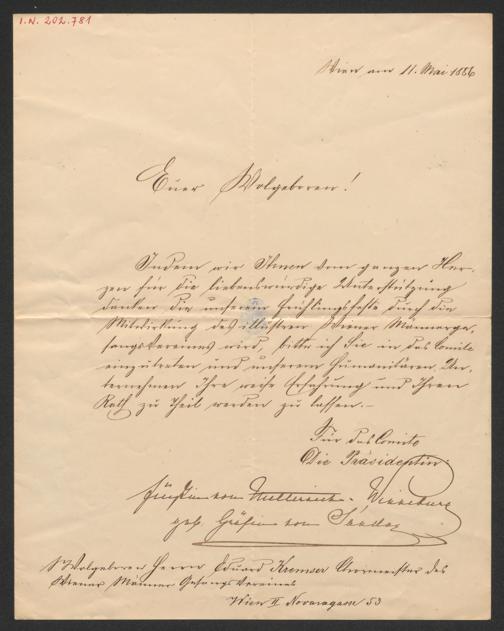 I.N. 202.781
Wien, am 11. Mai 1886
Euer Wolgeboren!
Indem wir Ihnen vom ganzen Her-
zen für die liebenswürdige Unterstützung
danken die unserem Frühlingsfeste durch die
Mitwirkung des illustren Wiener Männerge-
sangsvereines wird, bitte ich Sie in das Comite
einzutreten und unserem humanitären Un-
ternehmen Ihre reiche Erfahrung und Ihren
Rath zu Theil werden zu lassen.–
Für das Comite
Die Präsidentin:
Fürstin von Metternich-Winneburg
geb. Gräfin von Sándor
Wolgeboren Herrn Eduard Kremser Chormeister des
Wiener Männer Gesangs Vereines
Wien II Novaragasse 53